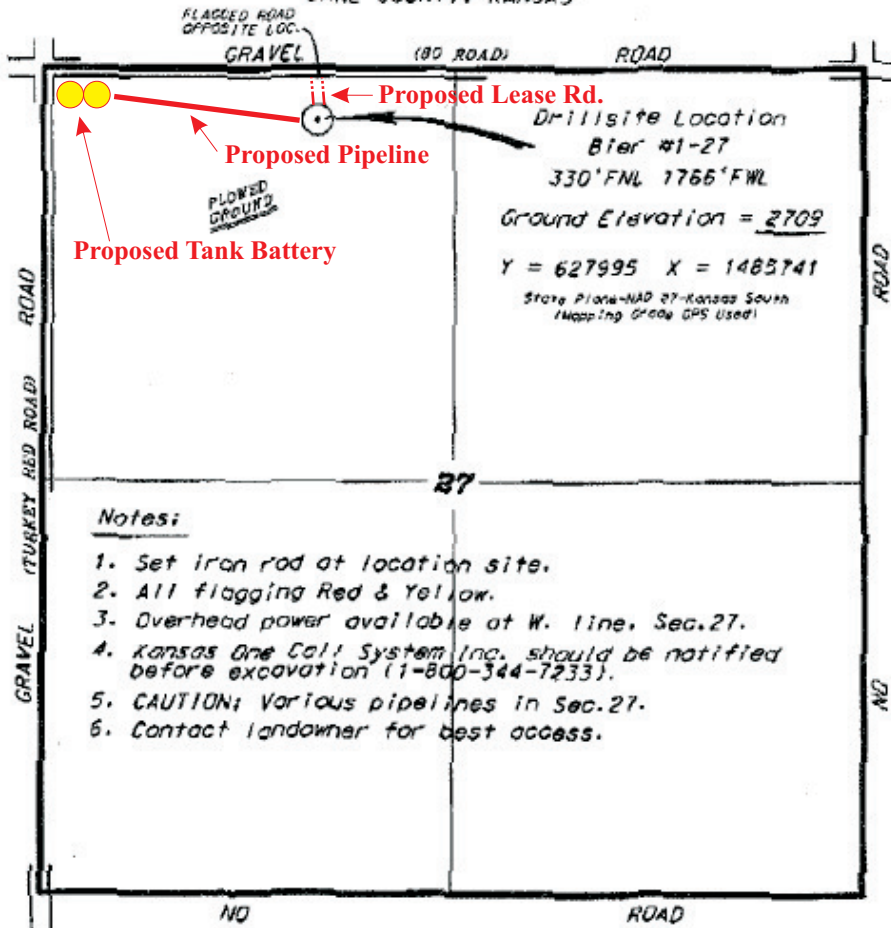 FLAGGED ROAD
OPPOSITE LOC.
GRAVEL (80 ROAD) ROAD
Proposed Lease Rd.
Drillsite Location
Bier #1-27
330'FNL 1766'FWL
Proposed Pipeline
PLOWED
GROUND
Ground Elevation = 2709
Proposed Tank Battery
Y = 627995 X = 1485741
State Plane-NAD 27-Kansas South
(Mapping Grade GPS Used)
GRAVEL (TURKEY RED ROAD) ROAD
NO ROAD
27
Notes:
1. Set iron rod at location site.
2. All flagging Red & Yellow.
3. Overhead power available at W. line, Sec.27.
4. Kansas One Call System Inc. should be notified
before excavation (1-800-344-7233).
5. CAUTION: Various pipelines in Sec.27.
6. Contact landowner for best access.
NO ROAD